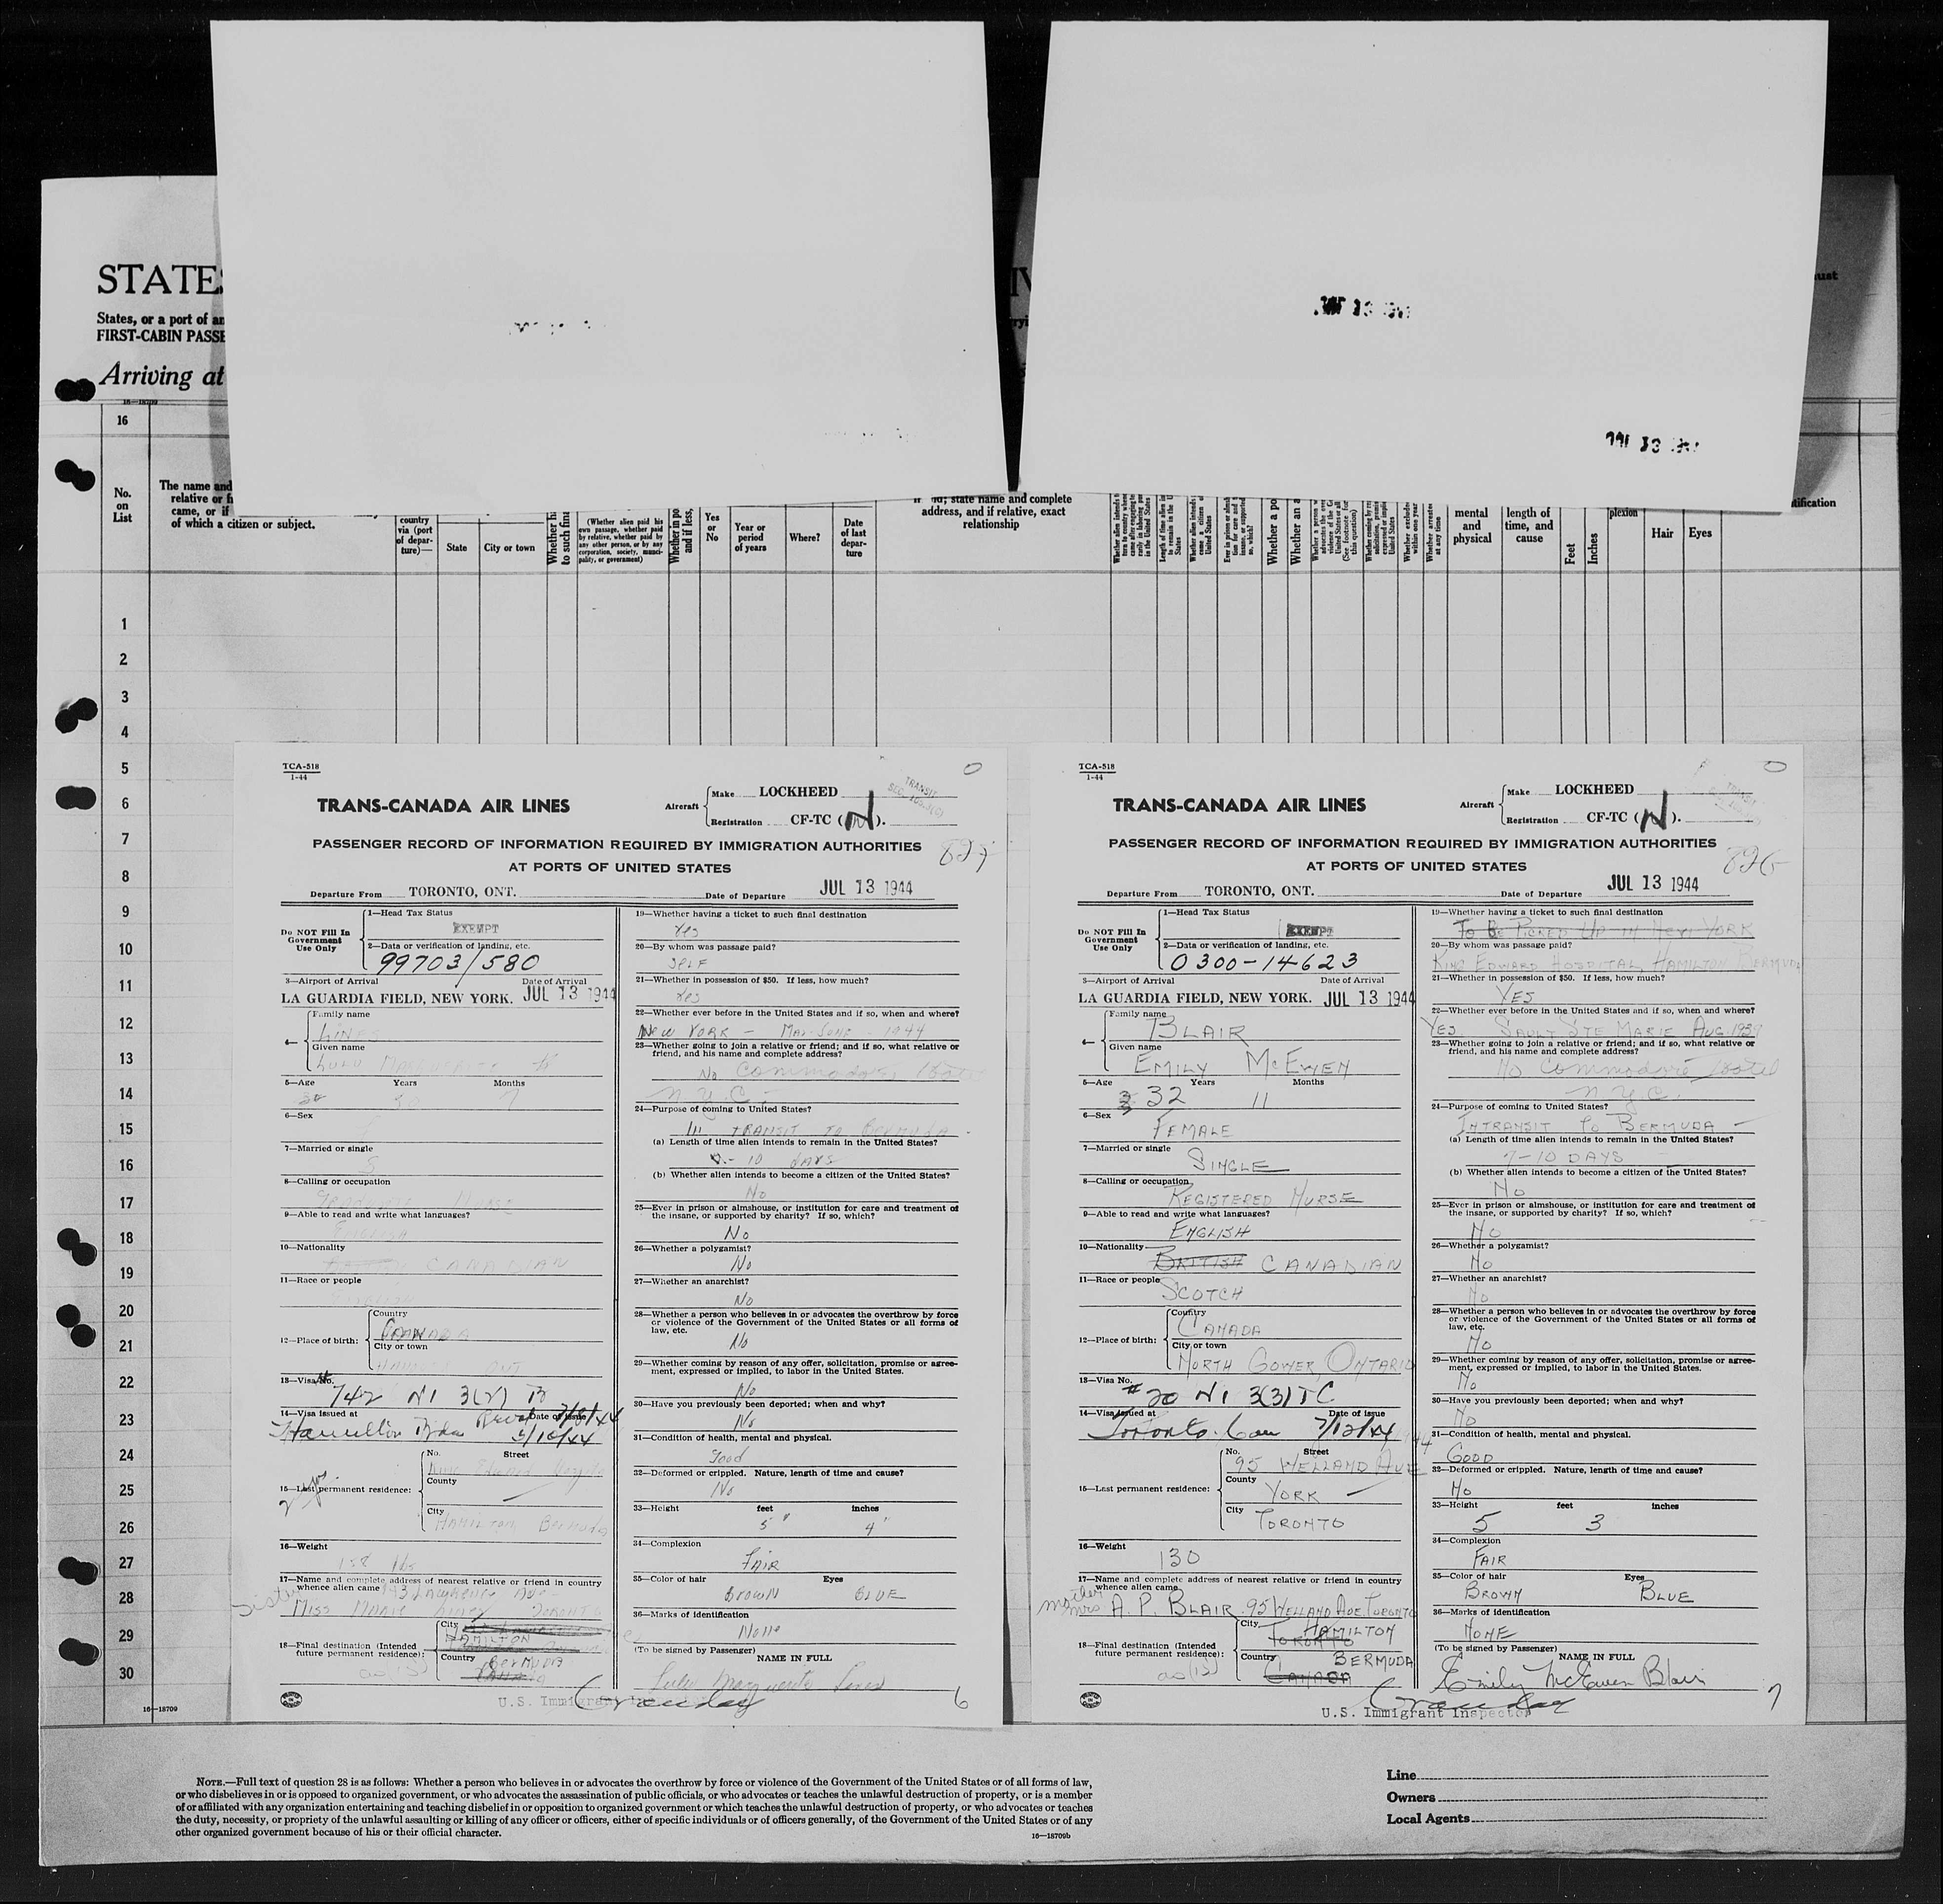 STATES
States, or a port of an
FIRST-CABIN PASSE
Arriving at
16—18709
16
No.
on
List
The name and
relative or f
came, or if
of which a citizen or subject.
country
via (port
of depar-
ture)—
State
City or town
(Whether alien paid his
own passage, whether paid
by relative, whether paid by
any other person, or by any
corporation, society, munici-
pality, or government)
Yes
or
No
Year or
period
of years
Where?
Date
of last
depar-
ture
state name and complete
address, and if relative, exact
relationship
mental
and
physical
length of
time, and
cause
Feet
Inches
plexion
Hair
Eyes
1
2
3
4
5
6
7
8
9
10
11
12
13
14
15
16
17
18
19
20
21
22
23
24
25
26
27
28
29
30
16—18709
TCA-518
1-44
TRANS-CANADA AIR LINES
Aircraft
Make LOCKHEED
Registration CF-TC (N).
TRANSIT
PASSENGER RECORD OF INFORMATION REQUIRED BY IMMIGRATION AUTHORITIES
AT PORTS OF UNITED STATES
Departure From TORONTO, ONT. Date of Departure JUL 13 1944
Do NOT Fill In
Government
Use Only
1—Head Tax Status
EXEMPT
2—Data or verification of landing, etc.
99703/580
3—Airport of Arrival Date of Arrival
LA GUARDIA FIELD, NEW YORK. JUL 13 1944
4—
Family name
LINES
Given name
LULU MARGUERITE
5—Age Years Months
7
6—Sex
7—Married or single
S
8—Calling or occupation
Graduate Nurse
9—Able to read and write what languages?
ENGLISH
10—Nationality
CANADIAN
11—Race or people
ENGLISH
12—Place of birth:
Country
CANADA
City or town
ONT
13—Visa No.
742 NI 3(2) B
14—Visa issued at Date of issue
Hamilton Bda
15—Last permanent residence:
No. Street
King Edward Hospital
County
City
HAMILTON Bermuda
16—Weight
158 lbs
17—Name and complete address of nearest relative or friend in country
whence alien came
Lawrence Ave
Sister
Miss TORONTO
18—Final destination (Intended
future permanent residence):
City
HAMILTON
Country
BERMUDA
U.S. Immigrant
19—Whether having a ticket to such final destination
Yes
20—By whom was passage paid?
SELF
21—Whether in possession of $50. If less, how much?
Yes
22—Whether ever before in the United States and if so, when and where?
NEW YORK — MAY-JUNE - 1944
23—Whether going to join a relative or friend; and if so, what relative or
friend, and his name and complete address?
No Commodore Hotel
N.Y.C.
24—Purpose of coming to United States?
IN TRANSIT TO BERMUDA
(a) Length of time alien intends to remain in the United States?
10 DAYS
(b) Whether alien intends to become a citizen of the United States?
No
25—Ever in prison or almshouse, or institution for care and treatment of
the insane, or supported by charity? If so, which?
No
26—Whether a polygamist?
No
27—Whether an anarchist?
No
28—Whether a person who believes in or advocates the overthrow by force
or violence of the Government of the United States or all forms of
law, etc.
No
29—Whether coming by reason of any offer, solicitation, promise or agree-
ment, expressed or implied, to labor in the United States.
No
30—Have you previously been deported; when and why?
No
31—Condition of health, mental and physical.
Good
32—Deformed or crippled. Nature, length of time and cause?
No
33—Height feet inches
5" 4"
34—Complexion
FAIR
35—Color of hair Eyes
BROWN BLUE
36—Marks of identification
None
(To be signed by Passenger) NAME IN FULL
Lulu Marguerite Lines
6
TCA-518
1-44
TRANS-CANADA AIR LINES
Aircraft
Make LOCKHEED
Registration CF-TC (N).
PASSENGER RECORD OF INFORMATION REQUIRED BY IMMIGRATION AUTHORITIES
AT PORTS OF UNITED STATES
826
Departure From TORONTO, ONT. Date of Departure JUL 13 1944
Do NOT Fill In
Government
Use Only
1—Head Tax Status
EXEMPT
2—Data or verification of landing, etc.
0300-14623
3—Airport of Arrival Date of Arrival
LA GUARDIA FIELD, NEW YORK. JUL 13 1944
4—
Family name
BLAIR
Given name
EMILY McEWEN
5—Age Years Months
32 11
6—Sex
FEMALE
7—Married or single
SINGLE
8—Calling or occupation
REGISTERED NURSE
9—Able to read and write what languages?
ENGLISH
10—Nationality
BRITISH CANADIAN
11—Race or people
SCOTCH
12—Place of birth:
Country
CANADA
City or town
NORTH GOWER, ONTARIO
13—Visa No.
#20 NI 3(3) TC
14—Visa issued at Date of issue
Toronto Can 7/12/44
15—Last permanent residence:
No. Street
95 WELLAND AVE
County
YORK
City
TORONTO
16—Weight
130
17—Name and complete address of nearest relative or friend in country
whence alien came
mother
mrs A. P. BLAIR 95 WELLAND AVE. TORONTO
18—Final destination (Intended
future permanent residence):
City
HAMILTON
TORONTO
Country
BERMUDA
CANADA
U.S. Immigrant Inspector
19—Whether having a ticket to such final destination
TO BE PICKED UP IN NEW YORK
20—By whom was passage paid?
KING EDWARD HOSPITAL, HAMILTON BERMUDA
21—Whether in possession of $50. If less, how much?
YES
22—Whether ever before in the United States and if so, when and where?
YES. SAULT STE MARIE AUG. 1939
23—Whether going to join a relative or friend; and if so, what relative or
friend, and his name and complete address?
No Commodore Hotel
N.Y.C.
24—Purpose of coming to United States?
INTRANSIT TO BERMUDA
(a) Length of time alien intends to remain in the United States?
7-10 DAYS
(b) Whether alien intends to become a citizen of the United States?
No
25—Ever in prison or almshouse, or institution for care and treatment of
the insane, or supported by charity? If so, which?
No
26—Whether a polygamist?
No
27—Whether an anarchist?
No
28—Whether a person who believes in or advocates the overthrow by force
or violence of the Government of the United States or all forms of
law, etc.
No
29—Whether coming by reason of any offer, solicitation, promise or agree-
ment, expressed or implied, to labor in the United States.
No
30—Have you previously been deported; when and why?
No
31—Condition of health, mental and physical.
GOOD
32—Deformed or crippled. Nature, length of time and cause?
No
33—Height feet inches
5 3
34—Complexion
FAIR
35—Color of hair Eyes
BROWN BLUE
36—Marks of identification
NONE
(To be signed by Passenger) NAME IN FULL
Emily McEwen Blair
7
NOTE.—Full text of question 28 is as follows: Whether a person who believes in or advocates the overthrow by force or violence of the Government of the United States or of all forms of law,
or who disbelieves in or is opposed to organized government, or who advocates the assassination of public officials, or who advocates or teaches the unlawful destruction of property, or is a member
of or affiliated with any organization entertaining and teaching disbelief in or opposition to organized government or which teaches the unlawful destruction of property, or who advocates or teaches
the duty, necessity, or propriety of the unlawful assaulting or killing of any officer or officers, either of specific individuals or of officers generally, of the Government of the United States or of any
other organized government because of his or their official character.
16—18709b
Line
Owners
Local Agents